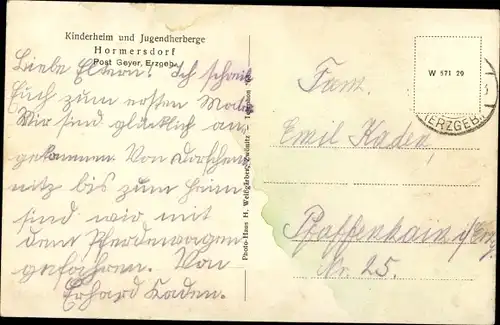 Kinderheim und Jugendherberge
Hormersdorf
Post Geyer, Erzgeb.
Liebe Eltern! Ich schreib
Euch zum ersten Male.
Wir sind glücklich an-
gekommen. Von Dorfchem-
nitz bis zum Heim
sind wir mit
dem Pferdewagen
gefahren. Von
Erhard Kaden.
Photo-Haus H. Weißgärber, Zwönitz Telephon
W 571 29
(ERZGEB.)
Fam.
Emil Kaden,
Pfaffenhain i/Erz.
Nr. 25.